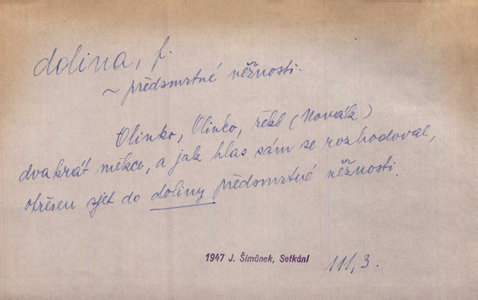 dolina, f.
~ předsmrtné něžnosti.
Olinko, Olinko, řekl (Novák)
dvakrát měkce, a jak hlas sám se rozhodoval,
otřesen sjet do doliny předsmrtné něžnosti.
1947 J. Šimůnek, Setkání
111, 3.